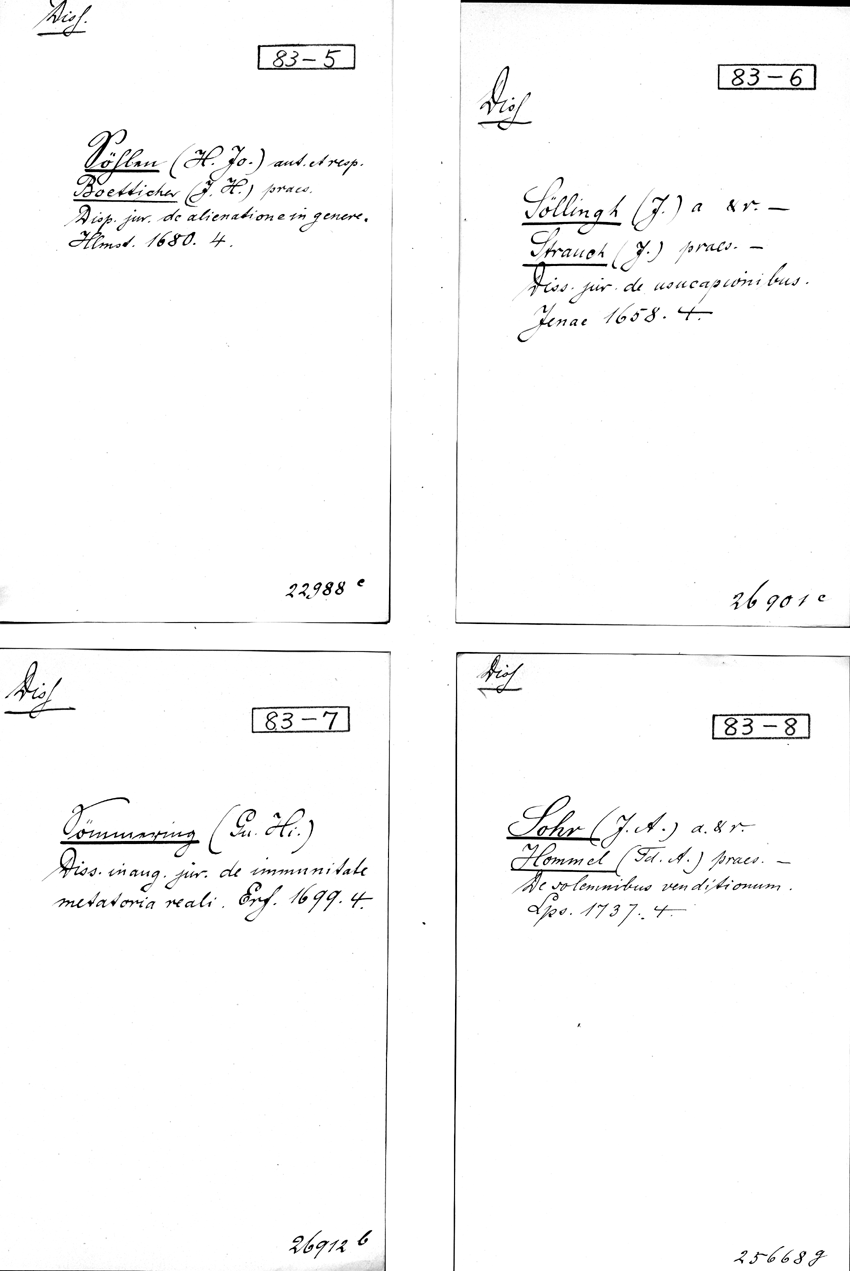 Diss.
83-5
Söhlen (H. Jo.) aut. et resp.
Boetticher (J. H.) praes.
Disp. jur. de alienatione in genere.
Hlmst. 1680. 4.
22988 c
Diss
83-6
Söllingh (J.) a & r. —
Strauch (J.) praes. —
Diss. jur. de usucapionibus.
Jenae 1658. 4.
26901 c
Diss
83-7
Sömmering (Gu. Hi.)
Diss. inaug. jur. de immunitate
metatoria reali. Erf. 1699. 4.
26912 b
Diss
83-8
Sohr (J. A.) a. & r.
Hommel (Fd. A.) praes. —
De solemnibus venditionum.
Lps. 1737. 4.
25668 g